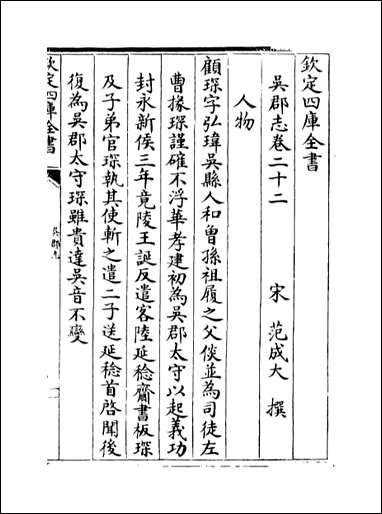 欽定四庫全書
吳郡志卷二十二
宋 范成大 撰
人物
顧琛字弘瑋吳縣人和曾孫祖履之父倓並為司徒左
曹掾琛謹確不浮華孝建初為吳郡太守以起義功
封永新侯三年竟陵王誕反遣客陸延稔齎書板琛
及子弟官琛執其使斬之遣二子送延稔首啓聞後
復為吳郡太守琛雖貴達吳音不變
欽定四庫全書
吳郡志